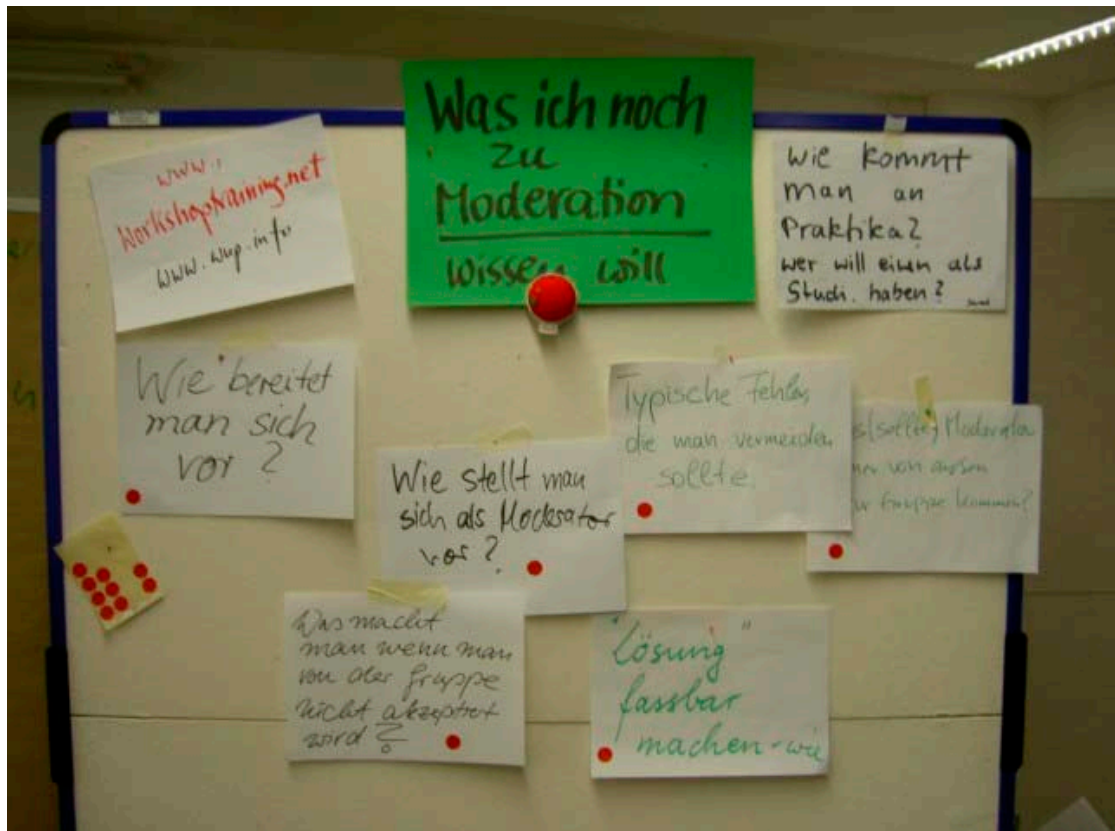 Was ich noch
zu
Moderation
wissen will
www.
Workshoptraining.net
www.wup.info
Wie kommt
man an
Praktika?
wer will einen als
Studi. haben?
Wie bereitet
man sich
vor?
Typische Fehler,
die man vermeiden
sollte
(sollte) Moderator
von außen
Gruppe kommen?
Wie stellt man
sich als Moderator
vor?
Was macht
man wenn man
von der Gruppe
nicht akzeptiert
wird?
"Lösung"
fassbar
machen-wie